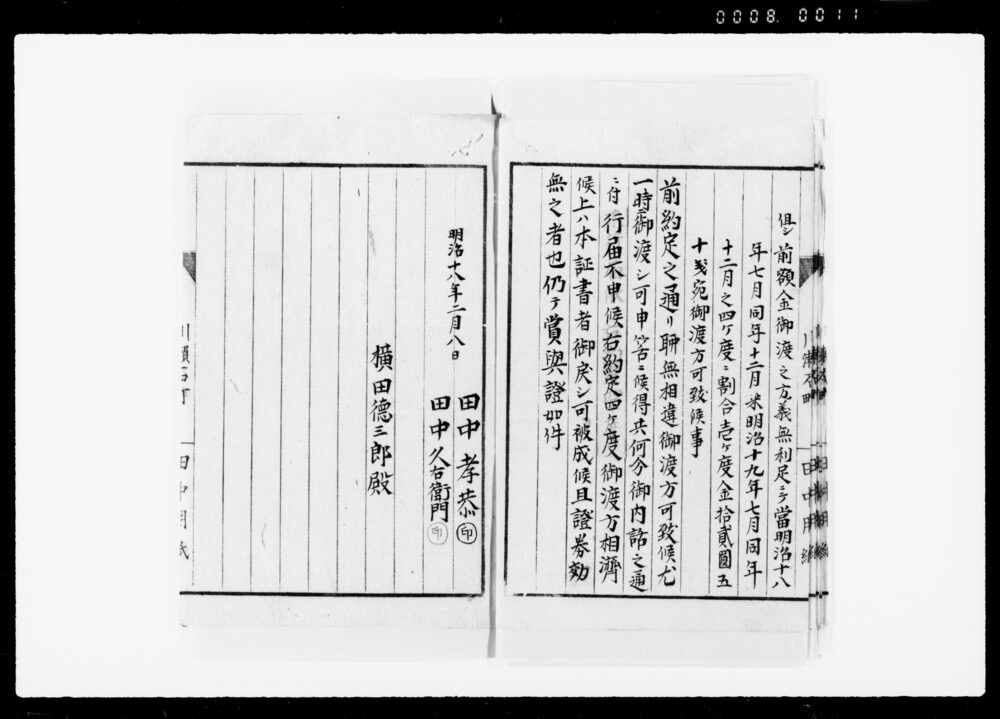 0008.0011
但シ前額金御渡之方義無利足ニテ當明治十八
年七月同年十二月来明治十九年七月同年
十二月之四ケ度ニ割合壱ケ度金拾貳圓五
十戋宛御渡方可致候事
前約定之通リ聊無相違御渡方可致候尤
一時ニ御渡シ可申筈ニ候得共何分御内話之通
ニ付行届不申候右約定四ケ度御渡方相濟
候上ハ本証書者御戻シ可被成候且證券効
無之者也仍テ賞與證如件
明治十八年二月八日
田中孝恭㊞
田中久右衛門㊞
横田德三郎殿